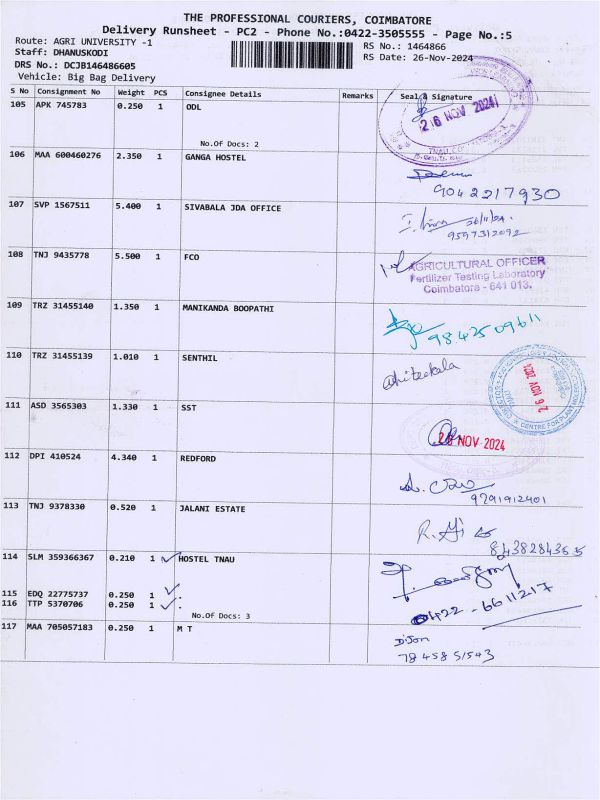 THE PROFESSIONAL COURIERS, COIMBATORE
Delivery Runsheet - PC2 - Phone No.:0422-3505555 - Page No.:5
Route: AGRI UNIVERSITY -1
RS No.: 1464866
Staff: DHANUSKODI
RS Date: 26-Nov-2024
DRS No.: DCJB146486605
Vehicle: Big Bag Delivery
S No Consignment No Weight PCS Consignee Details Remarks Seal & Signature
105 APK 745783 0.250 1 ODL
26 NOV 2024
No.Of Docs: 2
106 MAA 600460276 2.350 1 GANGA HOSTEL
9042217930
107 SVP 1567511 5.400 1 SIVABALA JDA OFFICE
26/11/24.
9597312092
108 TNJ 9435778 5.500 1 FCO
AGRICULTURAL OFFICER
Fertilizer Testing Laboratory
Coimbatore - 641 013.
109 TRZ 31455140 1.350 1 MANIKANDA BOOPATHI
9842509611
110 TRZ 31455139 1.010 1 SENTHIL
26 NOV 2024
111 ASD 3565303 1.330 1 SST
26 NOV 2024
112 DPI 410524 4.340 1 REDFORD
9791912401
113 TNJ 9378330 0.520 1 JALANI ESTATE
8438284365
114 SLM 359366367 0.210 1 HOSTEL TNAU
115 EDQ 22775737 0.250 1 .
116 TTP 5370706 0.250 1 .
0422 - 6611217
No.Of Docs: 3
117 MAA 705057183 0.250 1 M T
7845851543